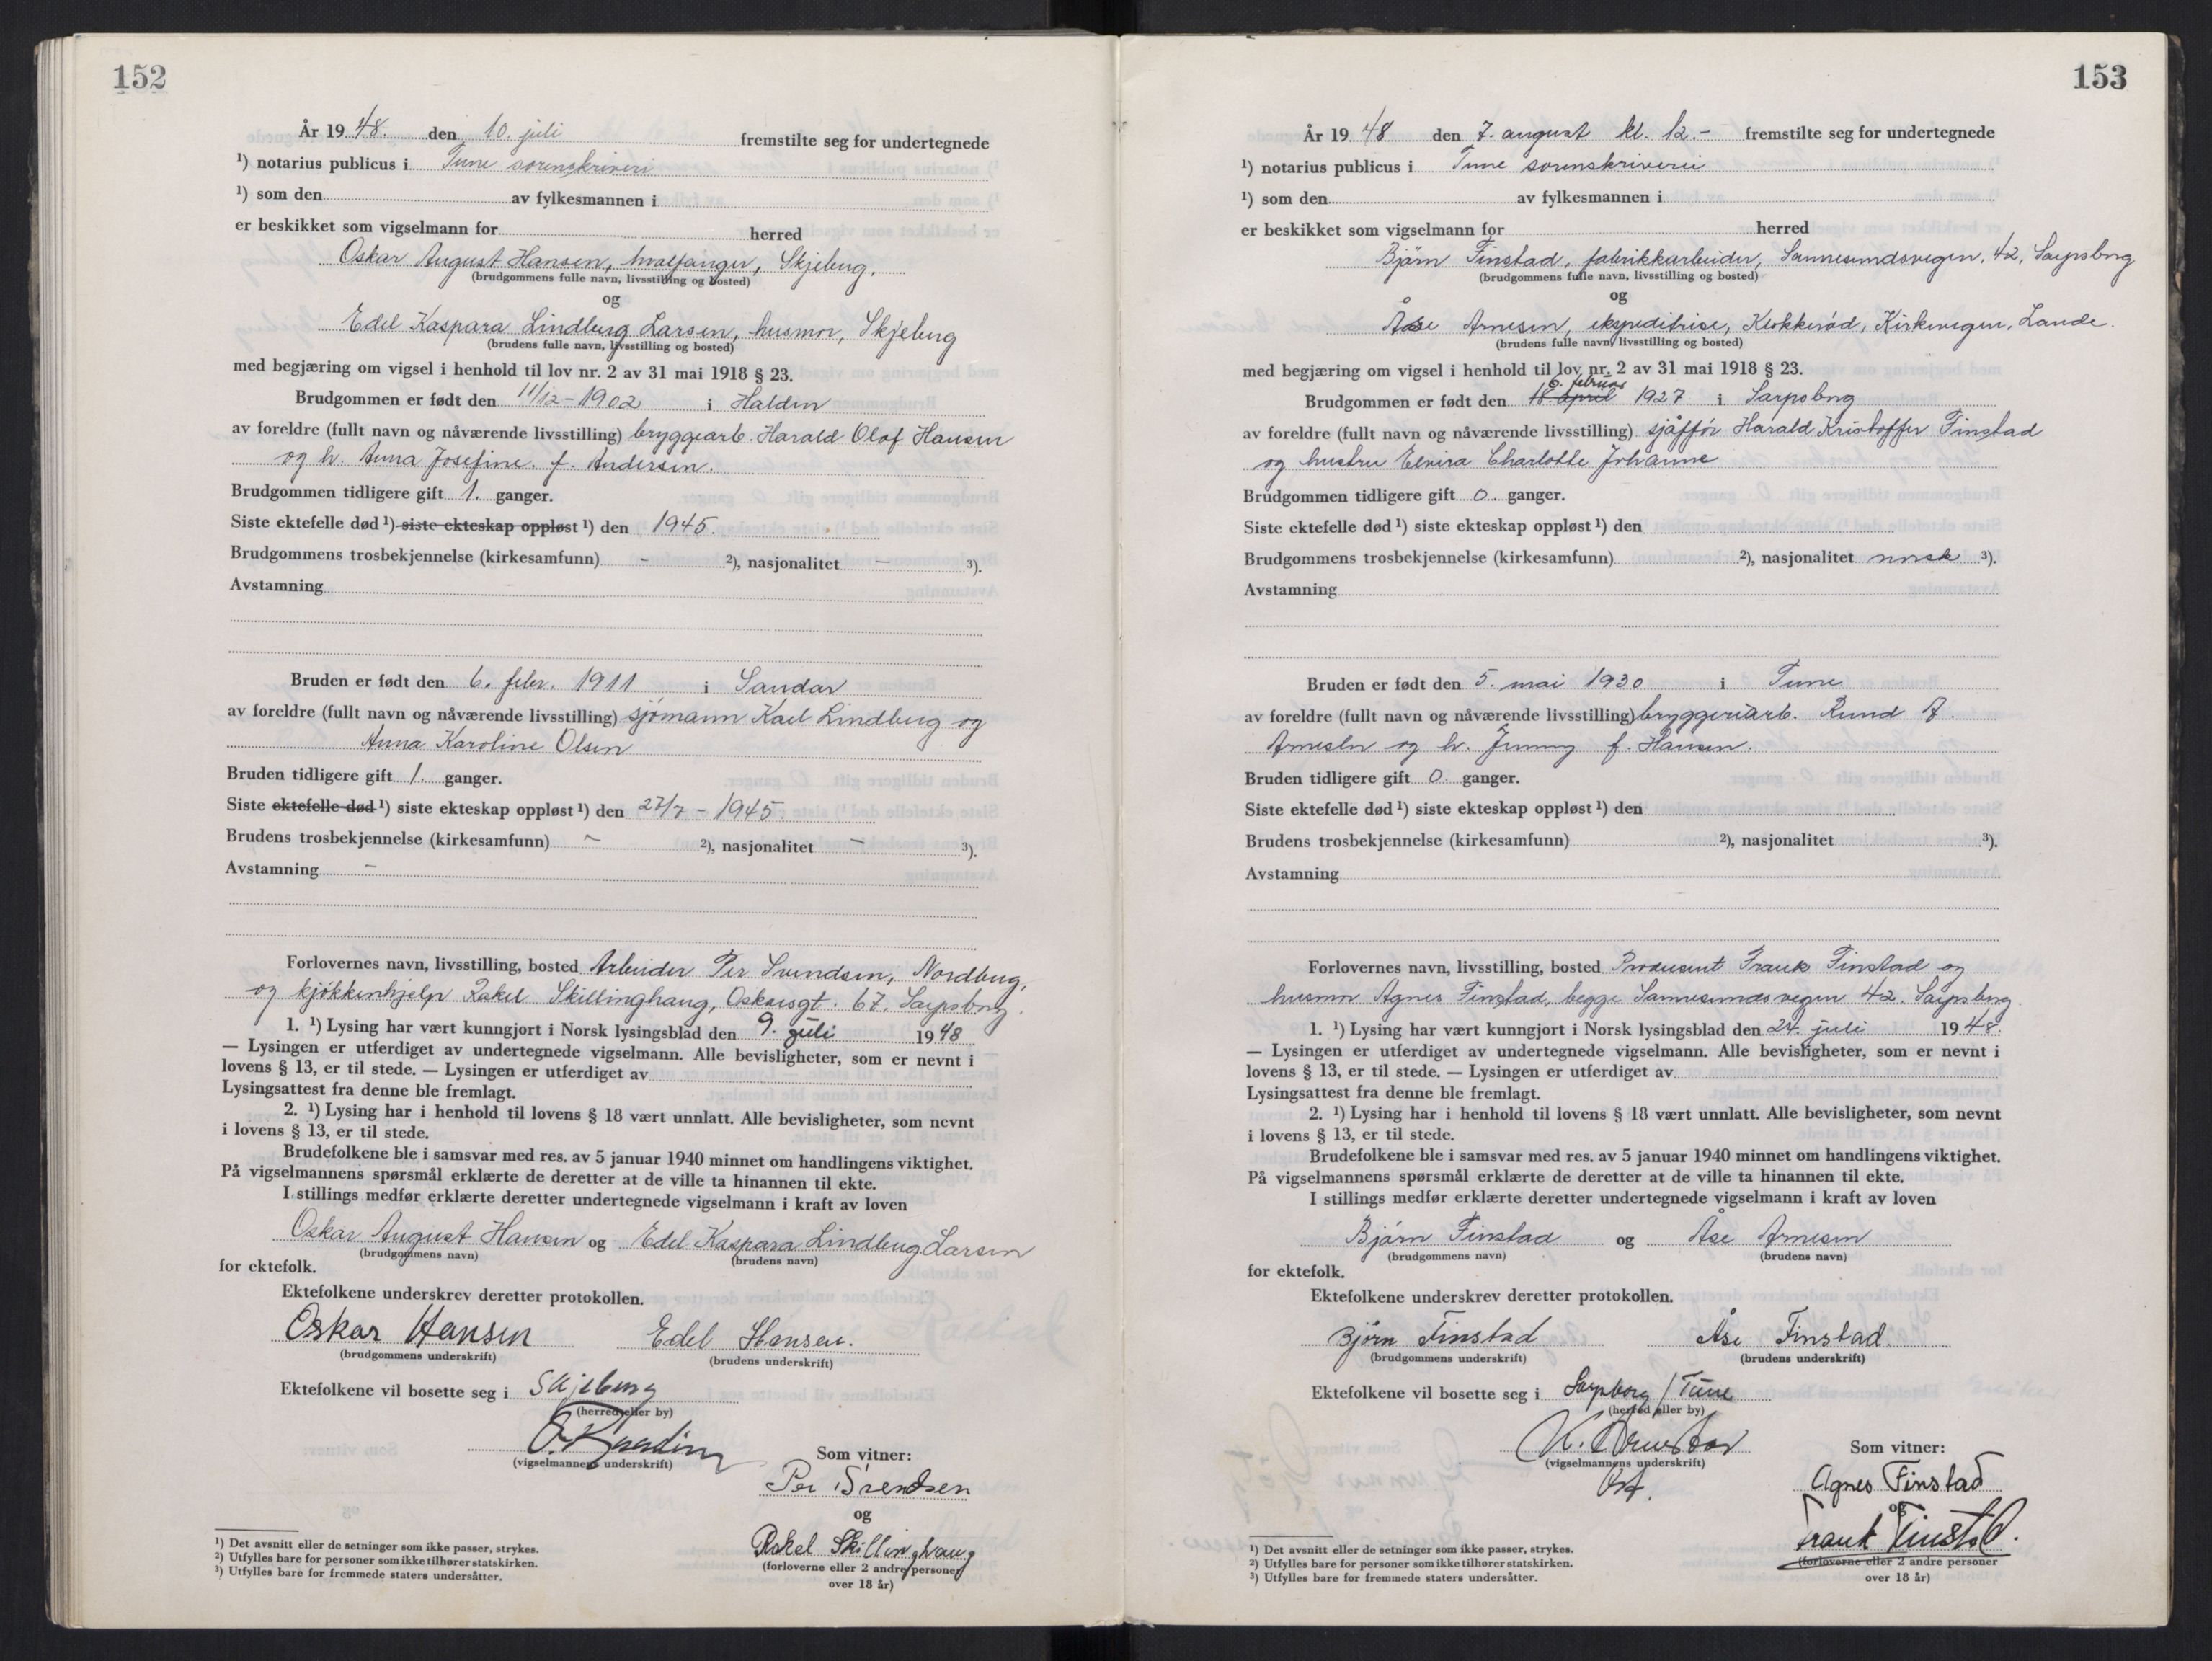 152
År 19 48. den 10. juli fremstilte seg for undertegnede
¹) notarius publicus i Tune sorenskriveri
¹) som den av fylkesmannen i
er beskikket som vigselmann for herred
Oskar August Hansen, hvalfanger, Skjeberg.
(brudgommens fulle navn, livsstilling og bosted)
og
Edel Kaspara Lindberg Larsen, husmor, Skjeberg
(brudens fulle navn, livsstilling og bosted)
med begjæring om vigsel i henhold til lov nr. 2 av 31 mai 1918 § 23.
Brudgommen er født den 11/12-1902 i Halden
av foreldre (fullt navn og nåværende livsstilling) bryggearb. Harald Olaf Hansen
og h. Anna Josefine. f. Andersen.
Brudgommen tidligere gift 1. ganger.
Siste ektefelle død ¹) siste ekteskap oppløst ¹) den 1945.
Brudgommens trosbekjennelse (kirkesamfunn) - ²), nasjonalitet - ³).
Avstamning
Bruden er født den 6. febr. 1911 i Sandar
av foreldre (fullt navn og nåværende livsstilling) sjømann Karl Lindberg og
Anna Karoline Olsen
Bruden tidligere gift 1. ganger.
Siste ektefelle død ¹) siste ekteskap oppløst ¹) den 27/7 - 1945.
Brudens trosbekjennelse (kirkesamfunn) - ²), nasjonalitet - ³).
Avstamning -
Forlovernes navn, livsstilling, bosted Arbeider Per Svendsen, Nordberg,
og kjøkkenhjelp Rakel Skillinghaug, Oskarsgt. 67. Sarpsborg.
1. ¹) Lysing har vært kunngjort i Norsk lysingsblad den 9. juli 1948
— Lysingen er utferdiget av undertegnede vigselmann. Alle bevisligheter, som er nevnt i
lovens § 13, er til stede. — Lysingen er utferdiget av
Lysingsattest fra denne ble fremlagt.
2. ¹) Lysing har i henhold til lovens § 18 vært unnlatt. Alle bevisligheter, som nevnt
i lovens § 13, er til stede.
Brudefolkene ble i samsvar med res. av 5 januar 1940 minnet om handlingens viktighet.
På vigselmannens spørsmål erklærte de deretter at de ville ta hinannen til ekte.
I stillings medfør erklærte deretter undertegnede vigselmann i kraft av loven
Oskar August Hansen og Edel Kaspara Lindberg Larsen
(brudgommens navn) (brudens navn)
for ektefolk.
Ektefolkene underskrev deretter protokollen.
Oskar Hansen Edel Hansen.
(brudgommens underskrift) (brudens underskrift)
Ektefolkene vil bosette seg i Skjeberg
(herred eller by)
(vigselmannens underskrift)
Som vitner:
Per Svendsen
og
Rakel Skillinghaug
(forloverne eller 2 andre personer
over 18 år)
¹) Det avsnitt eller de setninger som ikke passer, strykes.
²) Utfylles bare for personer som ikke tilhører statskirken.
³) Utfylles bare for fremmede staters undersåtter.
153
År 19 48 den 7. august kl. 12.- fremstilte seg for undertegnede
¹) notarius publicus i Tune sorenskriveri
¹) som den av fylkesmannen i
er beskikket som vigselmann for herred
Bjørn Finstad, fabrikkarbeider, Sannesundsvegen, 42, Sarpsborg
(brudgommens fulle navn, livsstilling og bosted)
og
Åse Arnesen, ekspeditrise, Klokkerød, Kirkevegen, Lande.
(brudens fulle navn, livsstilling og bosted)
med begjæring om vigsel i henhold til lov nr. 2 av 31 mai 1918 § 23.
6. februar
Brudgommen er født den 18 april 1927 i Sarpsborg
av foreldre (fullt navn og nåværende livsstilling) sjåffør Harald Kristoffer Finstad
og hustru Elvira Charlotte Johanne
Brudgommen tidligere gift 0. ganger.
Siste ektefelle død ¹) siste ekteskap oppløst ¹) den
Brudgommens trosbekjennelse (kirkesamfunn) ²), nasjonalitet norsk ³).
Avstamning
Bruden er født den 5. mai 1930 i Tune
av foreldre (fullt navn og nåværende livsstilling) bryggeriarb. A.
Arnesen og h. Jenny f. Hansen.
Bruden tidligere gift 0. ganger.
Siste ektefelle død ¹) siste ekteskap oppløst ¹) den
Brudens trosbekjennelse (kirkesamfunn) ²), nasjonalitet ³).
Avstamning
Forlovernes navn, livsstilling, bosted Produsent Frank Finstad og
husmor Agnes Finstad, begge Sannesundsvegen 42. Sarpsborg.
1. ¹) Lysing har vært kunngjort i Norsk lysingsblad den 24. juli 1948.
— Lysingen er utferdiget av undertegnede vigselmann. Alle bevisligheter, som er nevnt i
lovens § 13, er til stede. — Lysingen er utferdiget av
Lysingsattest fra denne ble fremlagt.
2. ¹) Lysing har i henhold til lovens § 18 vært unnlatt. Alle bevisligheter, som nevnt
i lovens § 13, er til stede.
Brudefolkene ble i samsvar med res. av 5 januar 1940 minnet om handlingens viktighet.
På vigselmannens spørsmål erklærte de deretter at de ville ta hinannen til ekte.
I stillings medfør erklærte deretter undertegnede vigselmann i kraft av loven
Bjørn Finstad og Åse Arnesen
(brudgommens navn) (brudens navn)
for ektefolk.
Ektefolkene underskrev deretter protokollen.
Bjørn Finstad Åse Finstad.
(brudgommens underskrift) (brudens underskrift)
Ektefolkene vil bosette seg i Sarpsborg / Tune
(herred eller by)
(vigselmannens underskrift)
Som vitner:
Agnes Finstad
og
Frank Finstad.
(forloverne eller 2 andre personer
over 18 år)
¹) Det avsnitt eller de setninger som ikke passer, strykes.
²) Utfylles bare for personer som ikke tilhører statskirken.
³) Utfylles bare for fremmede staters undersåtter.